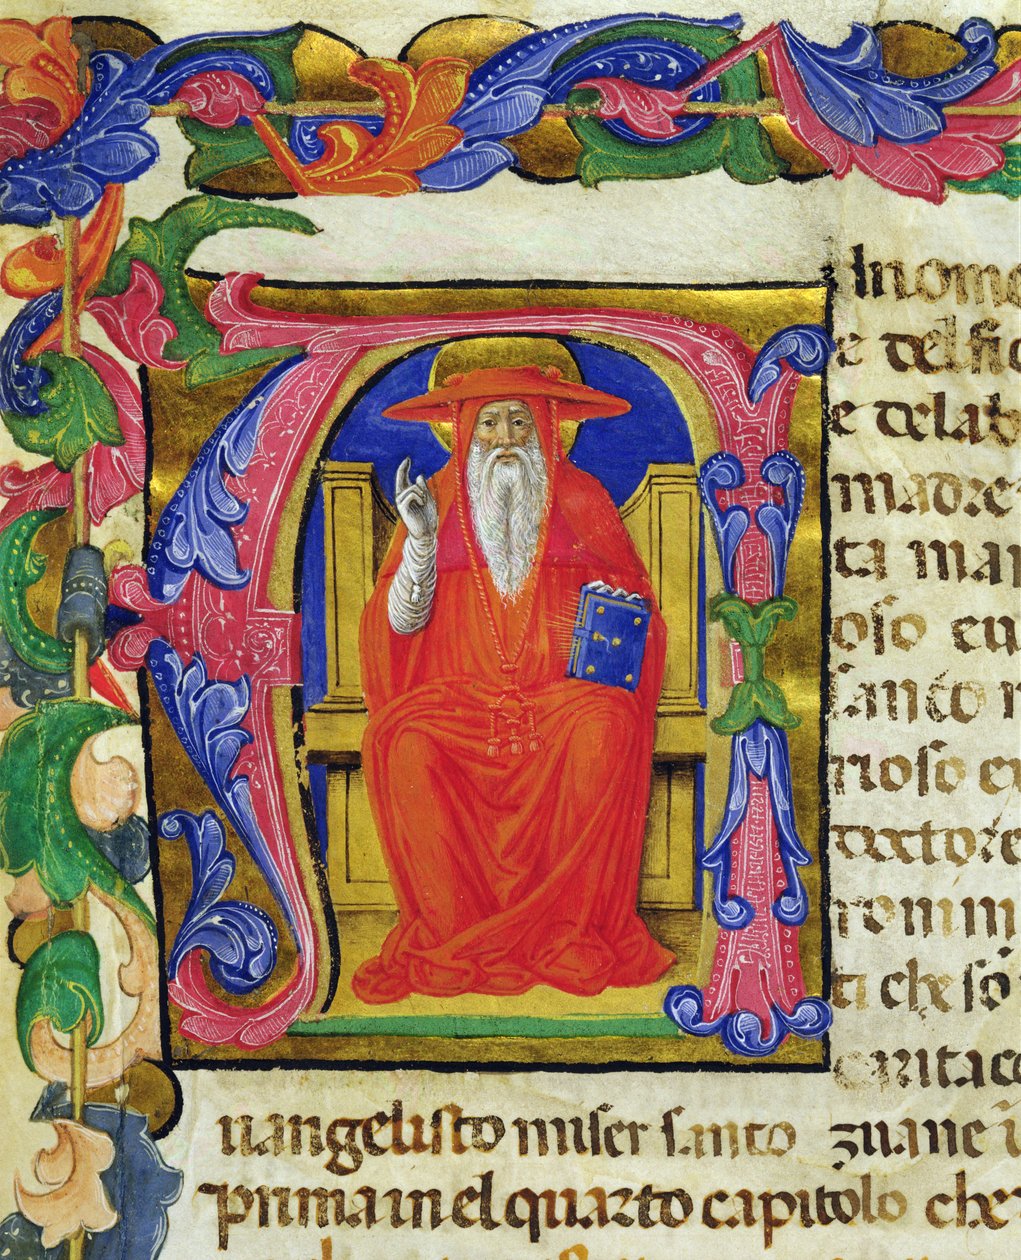 lnome
e del fio
e de la b
madre
ta mari
oso
sancto
rioso
doctore
romin
ti che so
eritace
uangelisto miser santo zuane i
prima nel quarto capitolo che